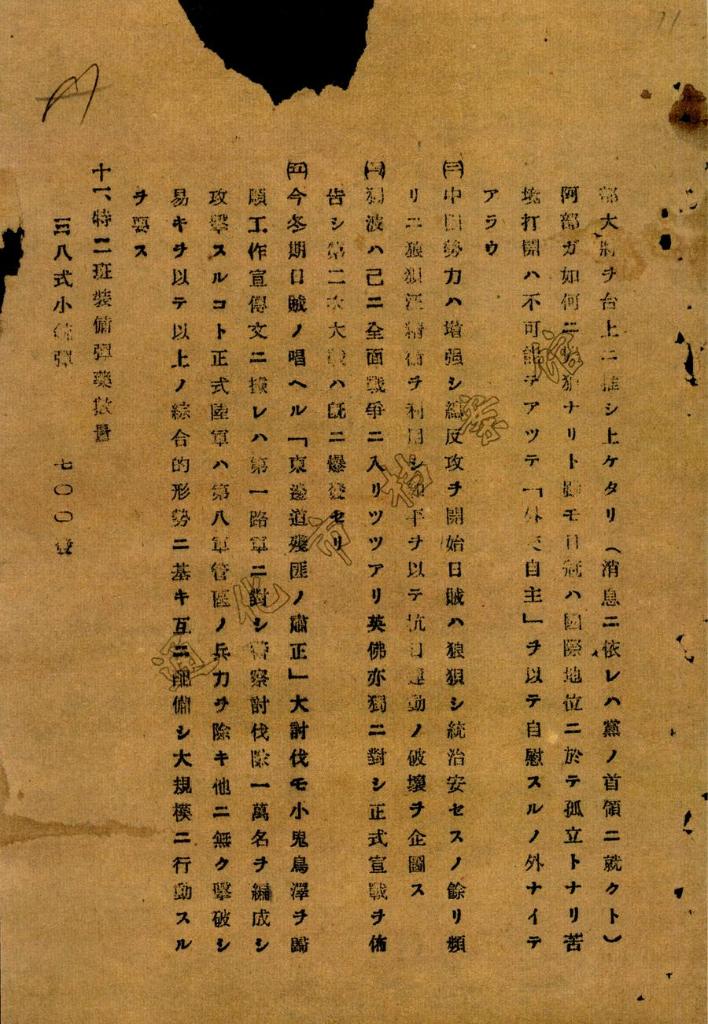 部大將ヲ台上ニ推シ上ケタリ（消息ニ依レハ黨ノ首領ニ就クト）
阿部ガ如何ニ ナリト モ日寇ハ國際地位ニ於テ孤立トナリ苦
境打開ハ不可能デアツテ「外交自主」ヲ以テ自慰スルノ外ナイデ
アラウ
㈢中國勢力ハ増强シ總反攻ヲ開始日賊ハ狼狽シ統治安セスノ餘リ頻
リニ 汪精衛ヲ利用シ和平ヲ以テ抗日運動ノ破壞ヲ企圖ス
㈣獨波ハ己ニ全面戰爭ニ入リツツアリ英佛亦獨ニ對シ正式宣戰ヲ佈
告シ第二次大戰ハ既ニ爆發セリ
㈤今冬期日賊ノ唱ヘル「東邊道殘匪ノ肅正」大討伐モ小鬼鳥澤ヲ歸
順工作宣傳文ニ據レハ第一路軍ニ對シ警察討伐隊一萬名ヲ編成シ
攻擊スルコト正式陸軍ハ第八軍管區ノ兵力ヲ除キ他ニ無ク擊破シ
易キヲ以テ以上ノ綜合的形勢ニ基キ互ニ配備シ大規模ニ行動スル
ヲ要ス
十一、特二班裝備彈藥數量
三八式小銃彈 七〇〇發
通化市档案館
11